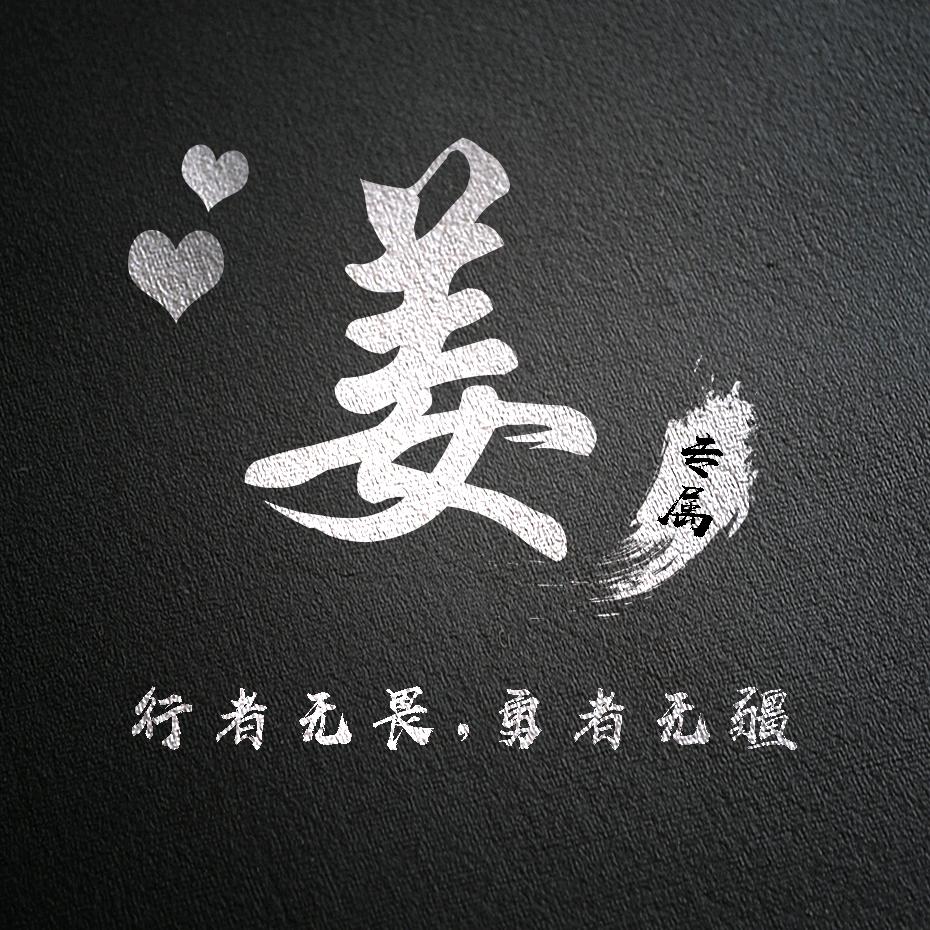 姜
专属
行者无畏，勇者无疆